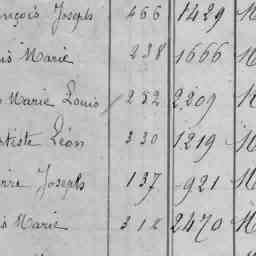 nçois Joseph 466 1429 M
is Marie 238 1666 M
Marie Louis 252 2209 M
Léon 330 1219 M
Joseph 137 921 M
is Marie 312 2470 M